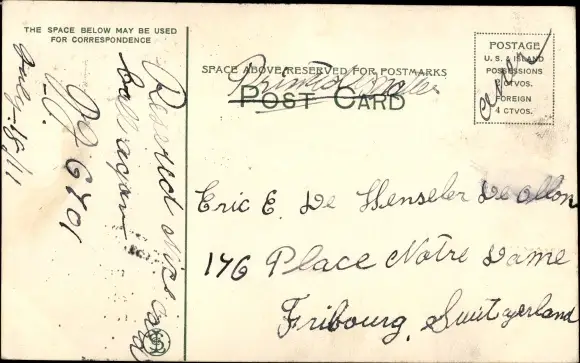 THE SPACE BELOW MAY BE USED
FOR CORRESPONDENCE
SPACE ABOVE RESERVED FOR POSTMARKS
Printed Matter
POST CARD
POSTAGE
U. S. & ISLAND
POSSESSIONS
2 CTVOS.
FOREIGN
4 CTVOS.
Received
call again
6701
July-15/11
Eric E. De Henseler
176 Place Notre Dame
Fribourg, Switzerland